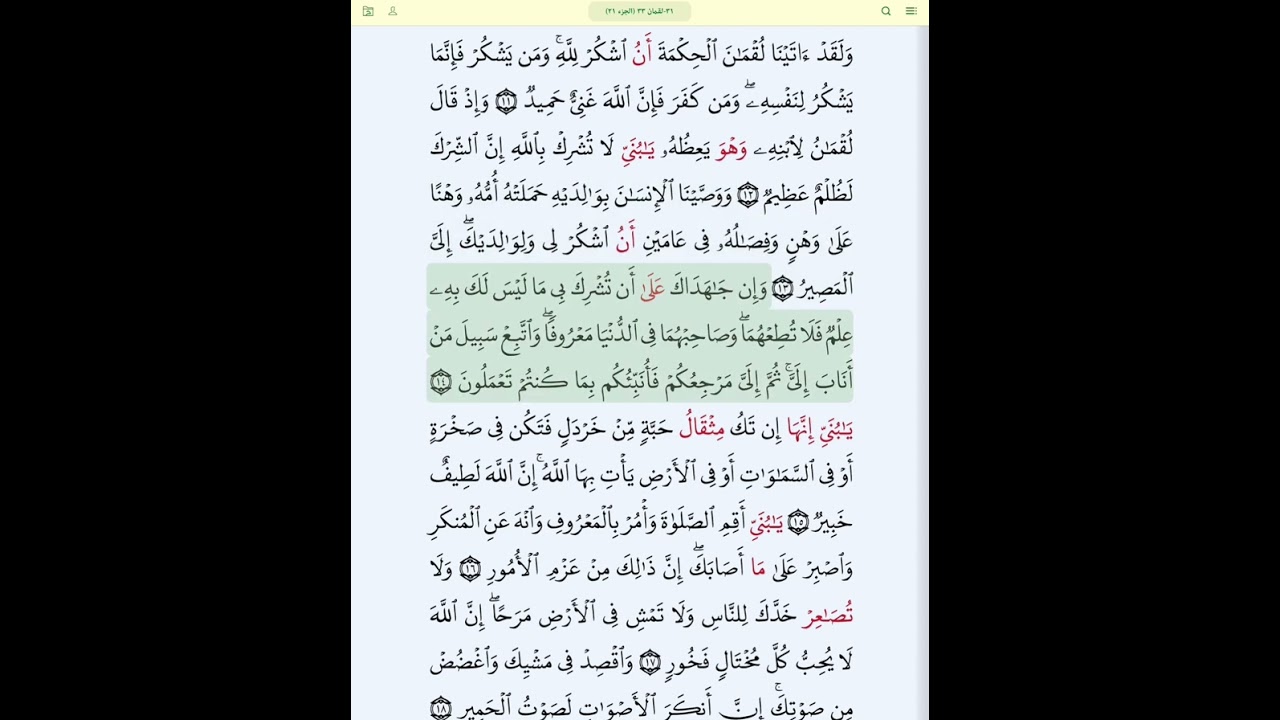 ٣١-لقمان ٣٣ (الجزء ٢١)
وَلَقَدْ ءَاتَيْنَا لُقْمَٰنَ اَ۬لْحِكْمَةَ أَنُ اُ۟شْكُرْ لِلهِۖ وَمَن يَشْكُرْ فَإِنَّمَا
يَشْكُرُ لِنَفْسِهِۦۖ وَمَن كَفَرَ فَإِنَّ اَ۬للَّهَ غَنِيٌّ حَمِيدٞ ١١ وَإِذْ قَالَ
لُقْمَٰنُ لِابْنِهِۦ وَهْوَ يَعِظُهُۥ يَٰبُنَيِّ لَا تُشْرِكْ بِاللَّهِ إِنَّ اَ۬لشِّرْكَ
لَظُلْمٌ عَظِيمٞ ١٢ وَوَصَّيْنَا اَ۬لْإِنسَٰنَ بِوَٰلِدَيْهِ حَمَلَتْهُ أُمُّهُۥ وَهْنًا
عَلَىٰ وَهْنٖ وَفِصَٰلُهُۥ فِي عَامَيْنِ أَنُ اُ۟شْكُرْ لِي وَلِوَٰلِدَيْكَۖ إِلَيَّ
اَ۬لْمَصِيرُ ١٣ وَإِن جَٰهَدَاكَ عَلَىٰ أَن تُشْرِكَ بِي مَا لَيْسَ لَكَ بِهِۦ
عِلْمٞ فَلَا تُطِعْهُمَاۖ وَصَاحِبْهُمَا فِي اِ۬لدُّنْيَا مَعْرُوفٗاۖ وَاَتَّبِعْ سَبِيلَ مَنْ
أَنَابَ إِلَيَّۚ ثُمَّ إِلَيَّ مَرْجِعُكُمْ فَأُنَبِّئُكُم بِمَا كُنتُمْ تَعْمَلُونَ ١٤
يَٰبُنَيِّ إِنَّهَا إِن تَكُ مِثْقَالُ حَبَّةٖ مِّنْ خَرْدَلٖ فَتَكُن فِي صَخْرَةٍ
أَوْ فِي اِ۬لسَّمَٰوَٰتِ أَوْ فِي اِ۬لْأَرْضِ يَأْتِ بِهَا اَ۬للَّهُۚ إِنَّ اَ۬للَّهَ لَطِيفٌ
خَبِيرٞ ١٥ يَٰبُنَيِّ أَقِمِ اِ۬لصَّلَوٰةَ وَأْمُرْ بِالْمَعْرُوفِ وَانْهَ عَنِ اِ۬لْمُنكَرِ
وَاصْبِرْ عَلَىٰ مَا أَصَابَكَۖ إِنَّ ذَٰلِكَ مِنْ عَزْمِ اِ۬لْأُمُورِ ١٦ وَلَا
تُصَٰعِرْ خَدَّكَ لِلنَّاسِ وَلَا تَمْشِ فِي اِ۬لْأَرْضِ مَرَحًاۖ إِنَّ اَ۬للَّهَ
لَا يُحِبُّ كُلَّ مُخْتَالٖ فَخُورٖ ١٧ وَاقْصِدْ فِي مَشْيِكَ وَاغْضُضْ
مِن صَوْتِكَۚ إِنَّ أَنكَرَ اَ۬لْأَصْوَٰتِ لَصَوْتُ اُ۬لْحَمِيرِ ١٨